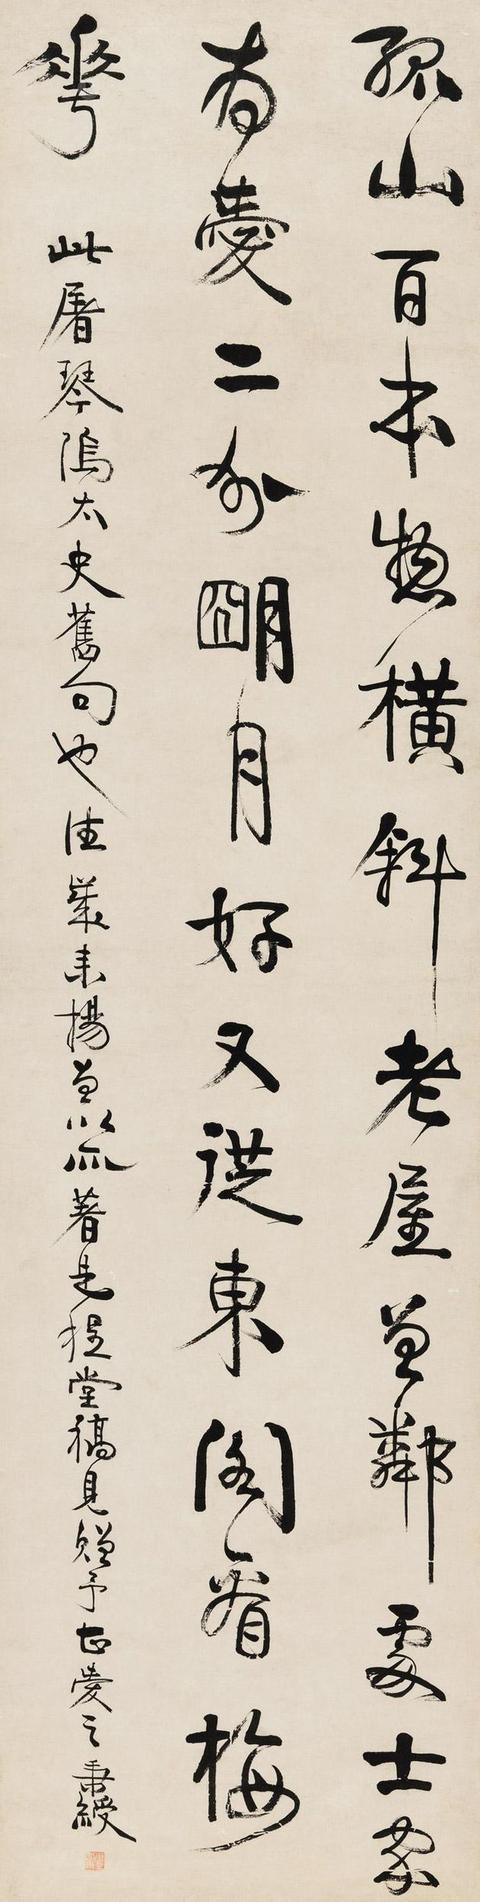 孤山百本惣橫斜老屋曾鄰處士家
愛二分朙月好又從東閣看梅
花 此屠琴隖太史舊句也往歲來揚曾以所著是程堂稿見贈予甚愛之 秉綬